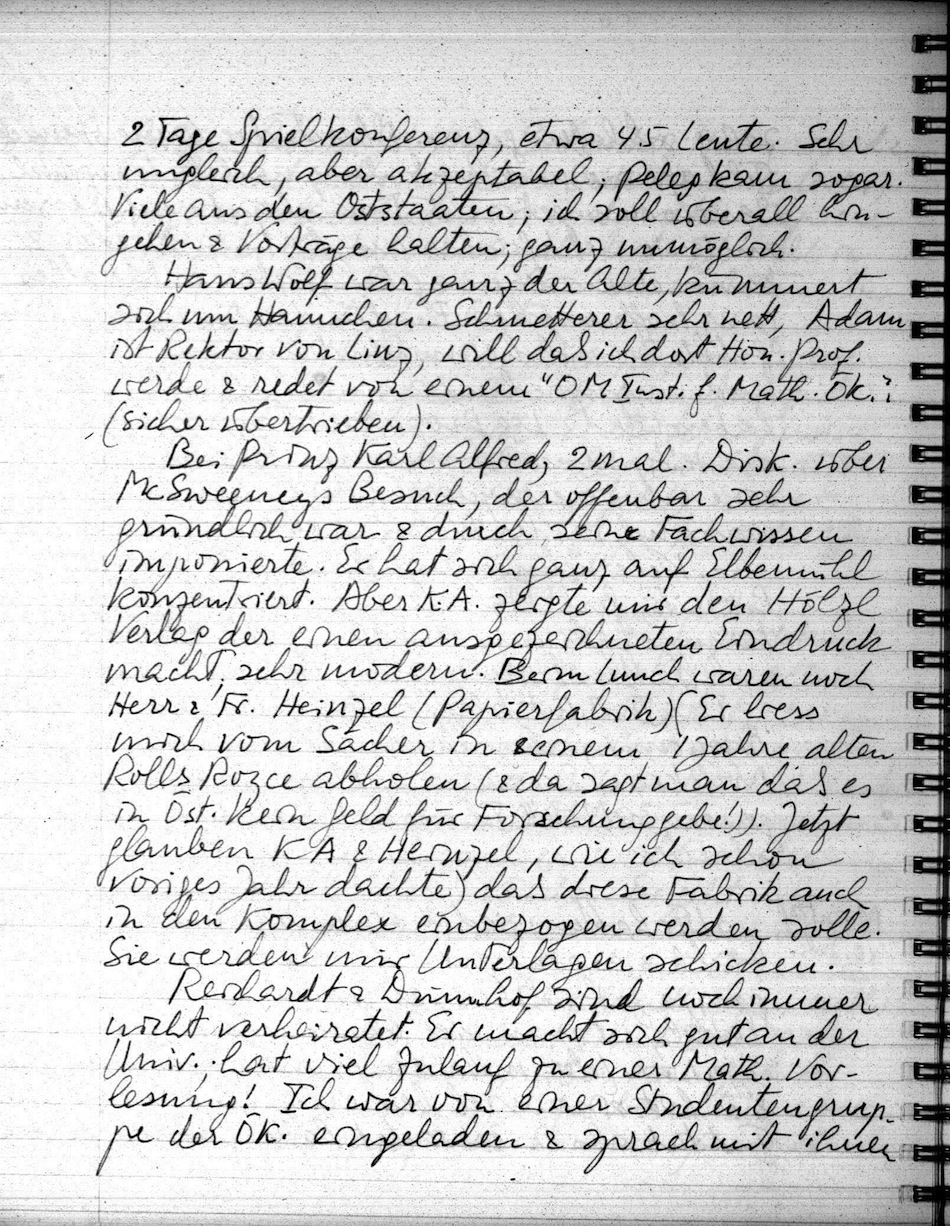 2 Tage Spielkonferenz, etwa 45 Leute. Sehr
ungleich, aber akzeptabel; Peleg kam sogar.
Viele aus den Oststaaten; ich soll überall hin-
gehen & Vorträge halten; ganz unmöglich.
Hans Wolf war ganz der Alte, kümmert
sich um Hannchen. Schmetterer sehr nett, Adam
ist Rektor von Linz, will daß ich dort Hon. Prof.
werde & redet von einem "OM Inst. f. Math. Ök."
(sicher übertrieben).
Bei Prinz Karl Alfred, 2 mal. Disk. über
McSweeneys Besuch, der offenbar sehr
gründlich war & durch seine Fachwissen
imponierte. Er hat sich ganz auf Elbemühl
konzentriert. Aber K.A. zeigte mir den Hölzl
Verlag der einen ausgezeichneten Eindruck
macht, sehr modern. Beim Lunch waren noch
Herr & Fr. Heinzel (Papierfabrik) (Er liess
mich vom Sacher in einem 1 Jahre alten
Rolls Royce abholen (& da sagt man daß es
in Öst. kein Geld für Forschung gebe!)). Jetzt
glauben KA & Heinzel, wie ich schon
voriges Jahr dachte) daß diese Fabrik auch
in den Komplex einbezogen werden solle.
Sie werden mir Unterlagen schicken.
Reichardt & sind noch immer
nicht verheiratet. Er macht sich gut an der
Univ.; hat viel Zulauf zu einer Math. Vor-
lesung! Ich war von einer Studentengrup-
pe der ÖK. eingeladen & sprach mit ihnen